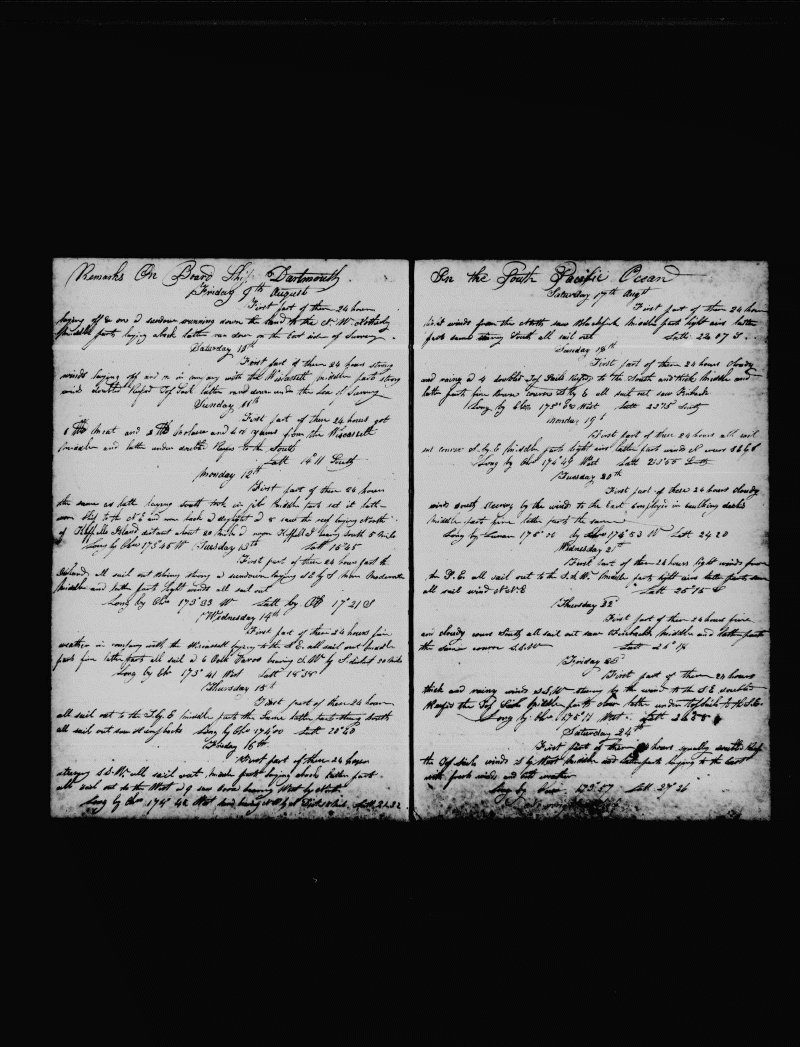 Remarks On Board Ship Dartmouth
Friday 9th August
First part of these 24 hours
laying off & on at sundown running down the land to the N.W.
Middle parts laying aback latter ran down on the East side of
Saturday 10th
First part of these 24 hours strong
winds laying off and on in company with the Wiscassett middle parts strong
winds doubled Reefed Top Sail latter ran down under the Lee of
Sunday 11th
First part of these 24 hours got
meat and molasses and from the Wiscassett
middle and latter under double Reefs to the South
Latt 14°11 South
Monday 12th
First part of these 24 hours
the same as last laying South took in jib Middle parts set it latter
wore Ship to the N.E and wore back at daylight at 8 saw the reef laying North
of Keppels Island distant about 20 Miles at noon Keppels Id bearing South 5 Miles
Long by Chr 173°45 W Tuesday 13th Latt 15°45
First part of these 24 hours fast the
all sail out blowing strong at sundown laying S E by S then Moderate
Middle and latter parts light winds all sail out
Long by Chr 173°33 W Latt by Ob 17°21 S
Wednesday 14th
First part of these 24 hours fine
weather in company with the Wiscassett going to the S.E. all sail out middle
part fine latter part all sail at 6 bearing S.W. by S distant 20 Miles
Long by Chr 173°41 West Latt 18°38
Thursday 15th
First part of these 24 hours
all sail out to the S by E middle parts the Same latter parts strong South
all sail out saw Humpbacks Long by Chr 174°00 Latt 20°40
Friday 16th
First part of these 24 hours
steering S.S.W. all sail out middle parts laying aback latter part
all sail out to the West at 9 saw bearing West by North
Long by Chr 174°42 West Latt 21.22
In the South Pacific Ocean
Saturday 17th Augst
First part of these 24 hours
light winds from the North saw Blackfish Middle parts light airs latter
part same steering South all sail out Latt 22°07 S.
Sunday 18th
First part of these 24 hours cloudy
and rainy at 4 doubled Top Sails Reefs to the South and thick Middle and
latter part fine lower courses S by E all sail out saw Finback
Long by Chr 175° West Latt 22°15 South
Monday 19th
First part of these 24 hours all sail
out course S by E middle parts light airs latter parts winds
Long by Chr 174°49 West Latt 23°55 South
Tuesday 20th
First part of these 24 hours cloudy
winds South steering by the wind to the East employed in caulking decks
Middle part fine latter parts the same
Long by Lunar 175° by Chr 174°53 W Latt 24 20
Wednesday 21st
First part of these 24 hours light winds from
the S.E. all sail out to the S.S.W. Middle parts light airs latter parts same
all sail wind N.N.E Latt 25°15
Thursday 22d
First part of these 24 hours fine
and cloudy course South all sail out saw Finbacks Middle and latter parts
the same course S.S.W Latt 26°18
Friday 23d
First part of these 24 hours
thick and rainy winds S.S.W steering by the wind to the S E doubled
Reefs the Top Sails Middle parts clear latter under Topsails to the S.E.
Long by Chr 175°11 West Latt 26°38
Saturday 24th
First part of these 24 hours squally double Reefs
the Top Sails winds S by West Middle and latter parts laying to the East
with fresh winds and thick weather
Long by Chr 173°57 Latt 27°26